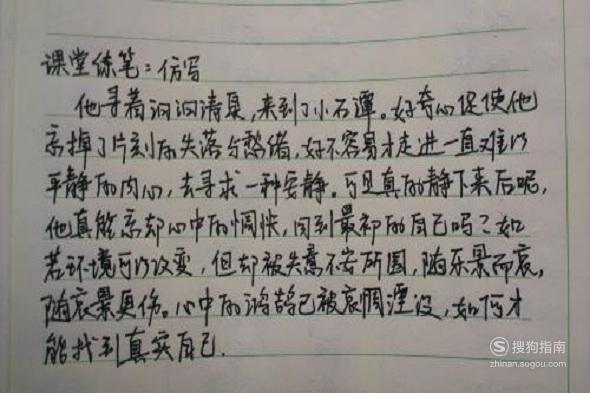 课堂练笔：仿写
他寻着汩汩清泉，来到了小石潭。好奇心促使他
忘掉了片刻的失落与愁绪，好不容易才走进一直难以
平静的内心，去寻求一种安静。可是真的静下来后呢，
他真能忘却心中的惆怅，回到最初的自己吗？如
若环境可以改变，但却被失意不安所围，随乐景而哀，
随哀景更伤。心中的鸿鹄已被哀惆湮没，如何才
能找到真实自己.
搜狗指南
zhinan.sogou.com